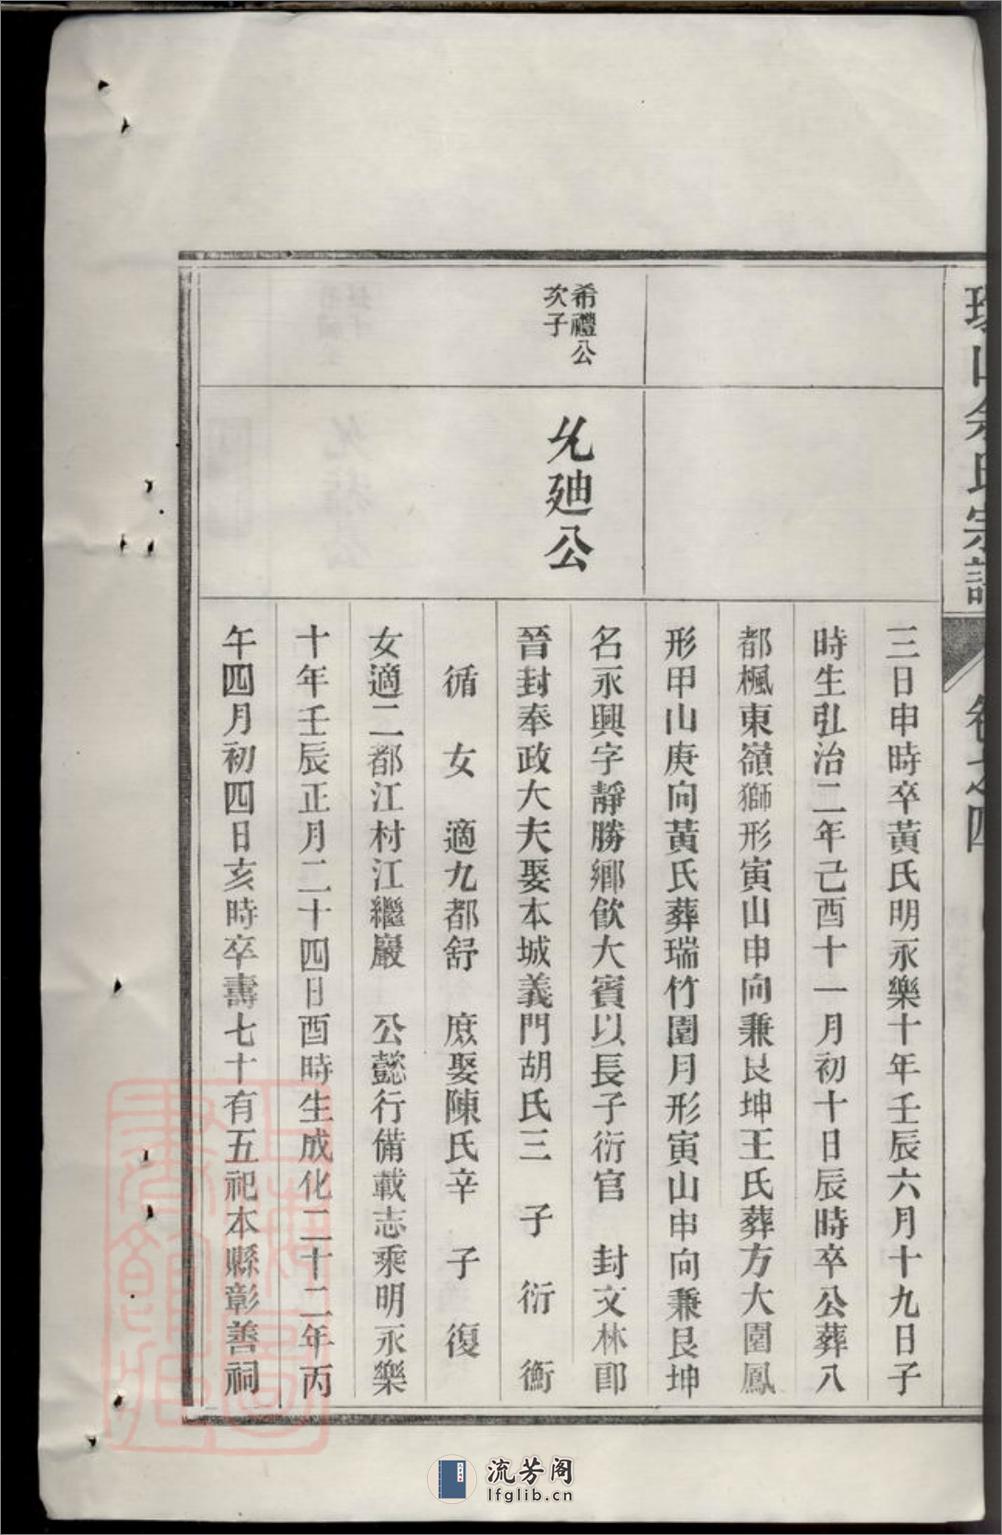 山余氏宗譜
卷之四
三日申時卒黃氏明永樂十年壬辰六月十九日子
時生弘治二年己酉十一月初十日辰時卒公葬八
都楓東嶺獅形寅山申向兼艮坤王氏葬方大園鳳
形甲山庚向黃氏葬瑞竹園月形寅山申向兼艮坤
希禮公
次子
允迪公
名永興字靜勝鄉飲大賓以長子衍官 封文林郎
晉封奉政大夫娶本城義門胡氏三 子 衍 衡
循 女 適九都舒 庶娶陳氏辛 子 復
女適二都江村江繼巖 公懿行備載志乘明永樂
十年壬辰正月二十四日酉時生成化二十二年丙
午四月初四日亥時卒壽七十有五祀本縣彰善祠
流芳阁
lfglib.cn